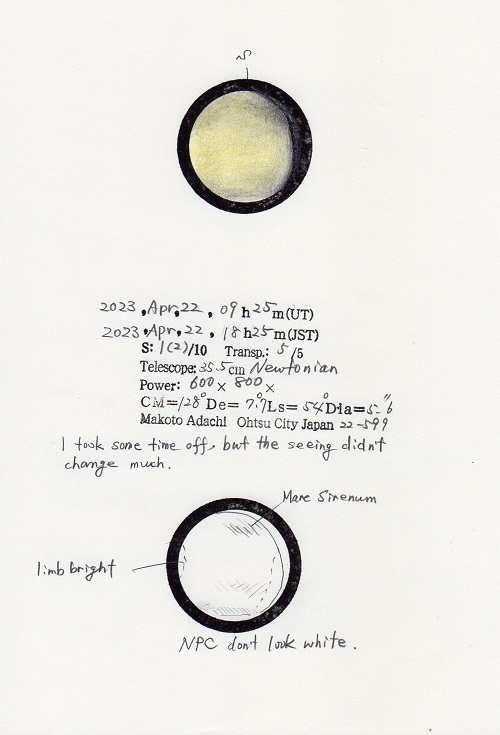 S
2023, Apr, 22, 09h25m(UT)
2023, Apr, 22, 18h25m(JST)
S: 1(2)/10 Transp.: 5/5
Telescope: 35.5cm Newtonian
Power: 600× 800×
CM=128° De= 7.7° Ls= 54° Dia=5.″6
Makoto Adachi Ohtsu City Japan 22-599
I took some time off, but the seeing didn't
change much.
Mare Sirenum
limb bright
NPC don't look white.